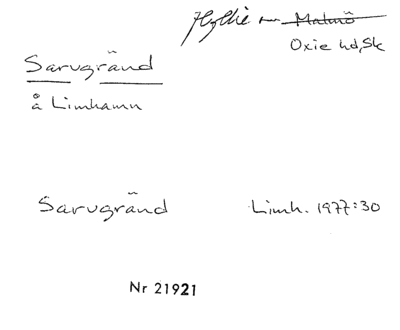 Hyllie sn Malmö
Oxie hd, Sk
Sarugränd
å Limhamn
Sarugränd Limh. 1977:30
Nr 21921